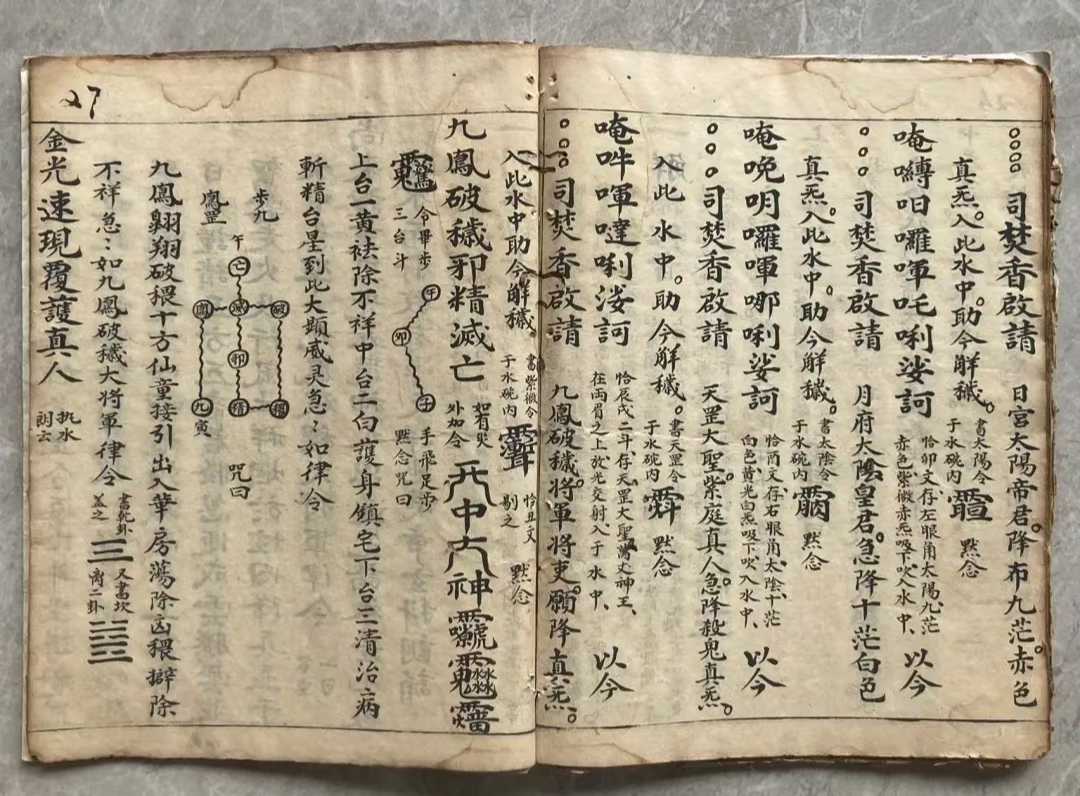 司焚香啟請 日宮大陽帝君。降布九茫。赤色
真炁。入此水中。助令解穢。 書太陽令于水碗內 默念 恰卯文存左眼角太陽九茫赤色紫微赤炁吸下吹入水中、 以今
唵嚩呬囉唓吒唎娑訶
司焚香啟請 月府太陰皇君。急降十茫白色
真炁。入此水中。助今解穢。 書太陰令于水碗內 默念
唵晚明囉唓哪唎娑訶 恰酉文存右眼角太陰十茫白色黃光白炁吸下吹入水中、 以今
司焚香啟請 天罡大聖。紫庭真人。急降殺鬼真炁。
入此水中。助今解穢。 書天罡令于水碗內 默念
唵吽唓噠唎娑訶 恰辰戌二斗、存天罡大聖 神王、在両眉之上、放光交射入于水中、 以今
司焚香啟請 九鳳破穢。將軍將吏。願降真炁。
入此水中助令解穢。 書紫微令于水碗內 恰丑文剔之 默念
九鳳破穢邪精滅亡 外加令 神
令畢步三台斗 午 卯 子 手飛足步默念咒曰
上台一黃祛除不祥中台二白護身鎮宅下台三清治病
斬精台星到此大顯威灵急:如律令
步九鳳罡 午 亡 滅 破 鳳 卯 穢 精 九 寅 咒曰
九鳳翱翔破穢十方仙童接引出入華房蕩除凶穢辟除
不祥急:如九鳳破穢大將軍律令 書乾卦蓋之 ☰ 又書坎离二卦
金光速現覆護真人 執水朗云
27